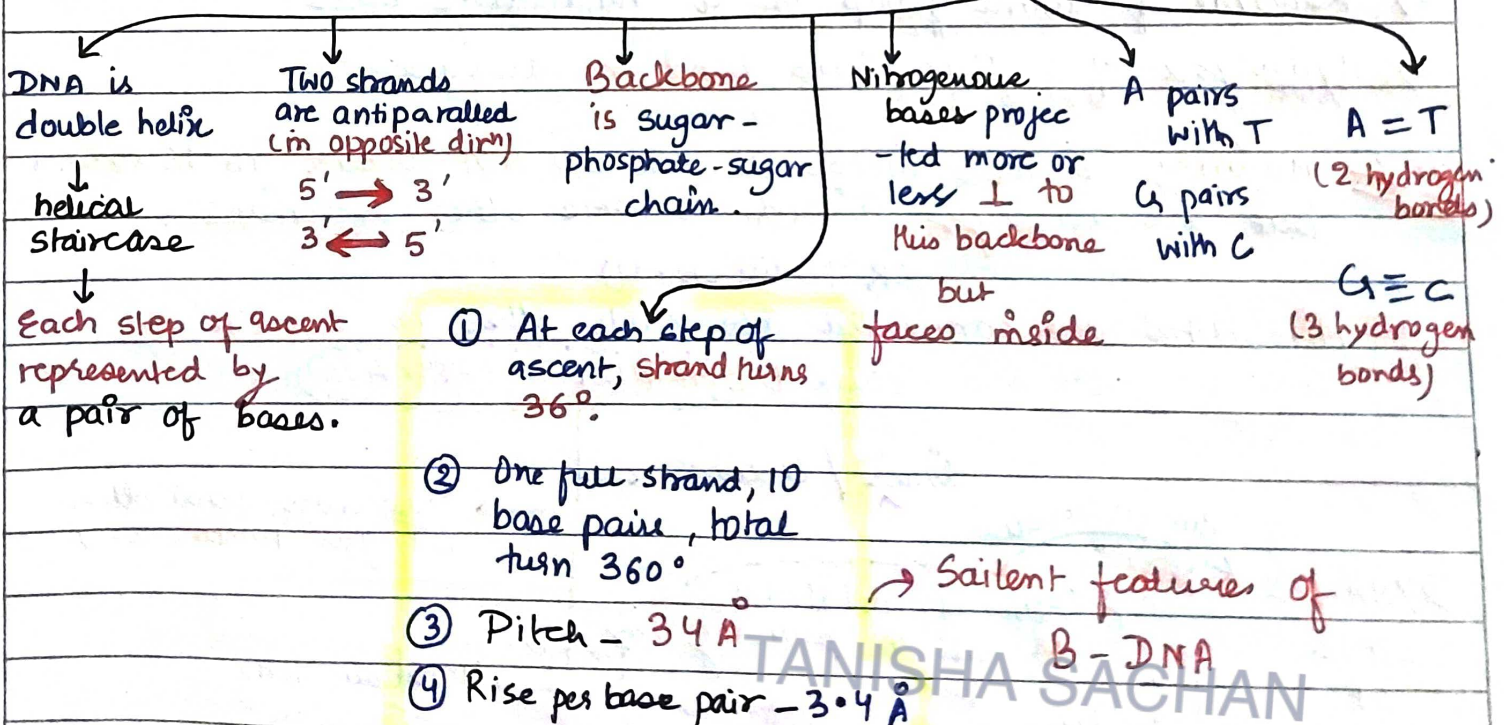 DNA is
double helix
helical
staircase
Each step of ascent
represented by
a pair of bases.
Two strands
are antiparalled
(in opposite dirⁿ)
5' → 3'
3' ↔ 5'
Backbone
is sugar-
phosphate-sugar
chain.
① At each step of
ascent, strand turns
36°.
② One full strand, 10
base pairs, total
turn 360°
③ Pitch - 34 Å
④ Rise per base pair - 3.4 Å
Nitrogenous
bases projec
-ted more or
less ⊥ to
this backbone
but
faces inside
A pairs
with T
G pairs
with C
A = T
(2 hydrogen
bonds)
G ≡ C
(3 hydrogen
bonds)
→ Sailent features of
B - DNA
TANISHA SACHAN